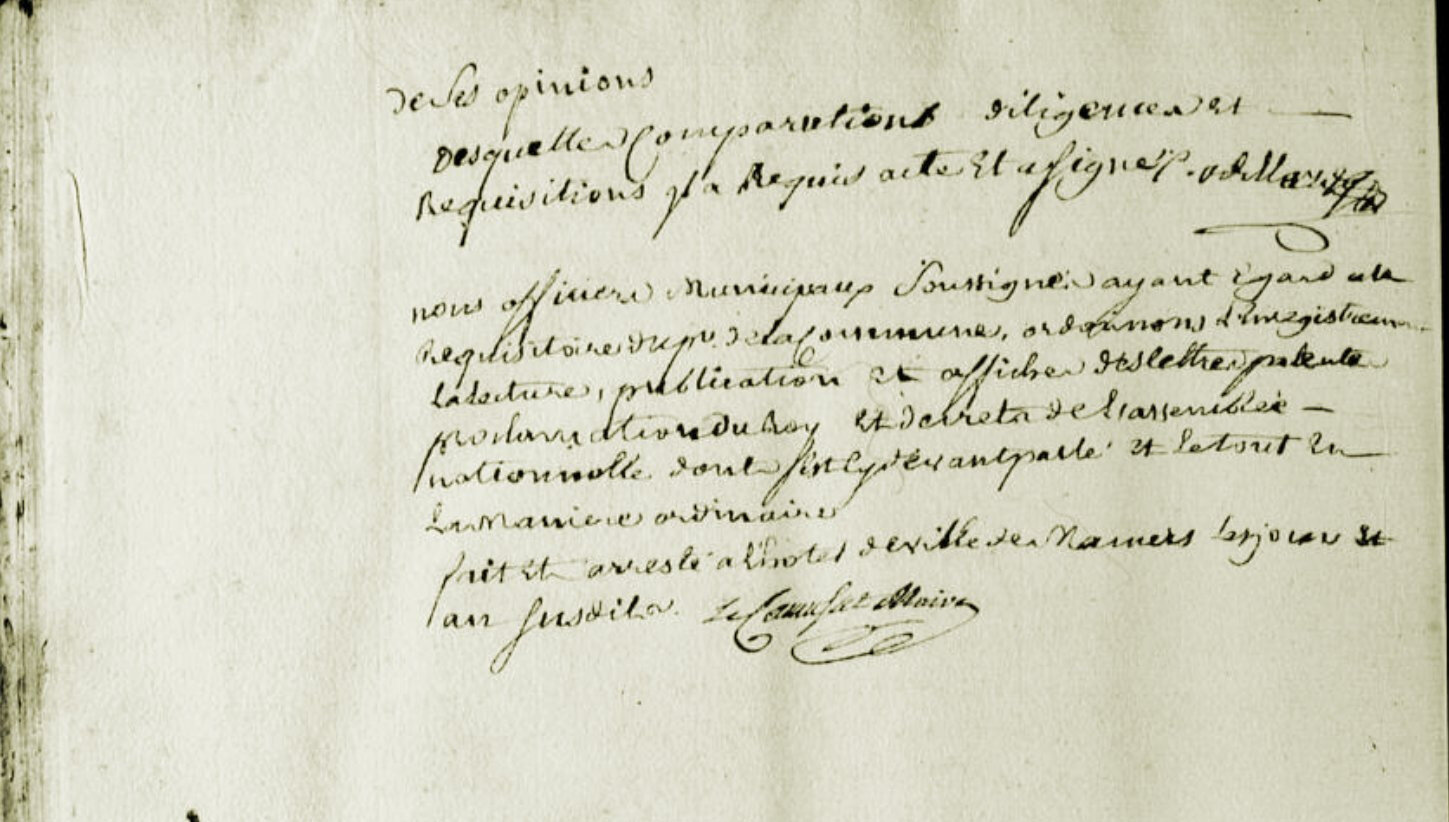 de ses opinions
desquelles Comparutions diligences et
Requisitions il a Requis acte Et a signé P.
nous officiers Municipaux Soussignés ayant Egard a la
Requisitoire du pr. de la Commune, ordonnons L'enregistrement
la lecture, publication et affiches des lettres patentes
proclamation du Roy et decrets de l'assemblée
nationnalle dont s'est cy devant parlé et le tout En
la Maniere ordinaire
fait et arresté a l'hotel de ville de Mamers les jour et
an susdits. Maire